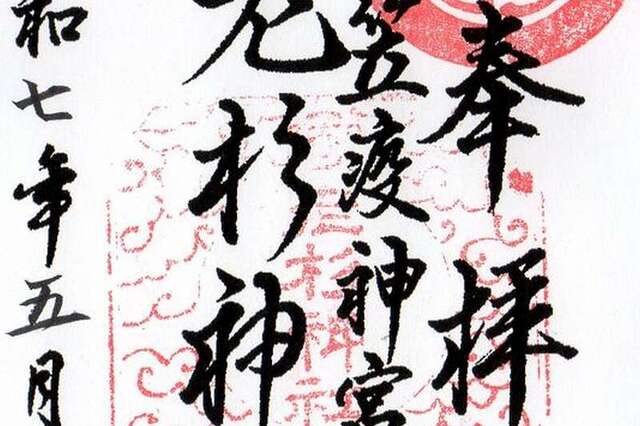 奉拝
笠疫神宮
杉神
和七年五月